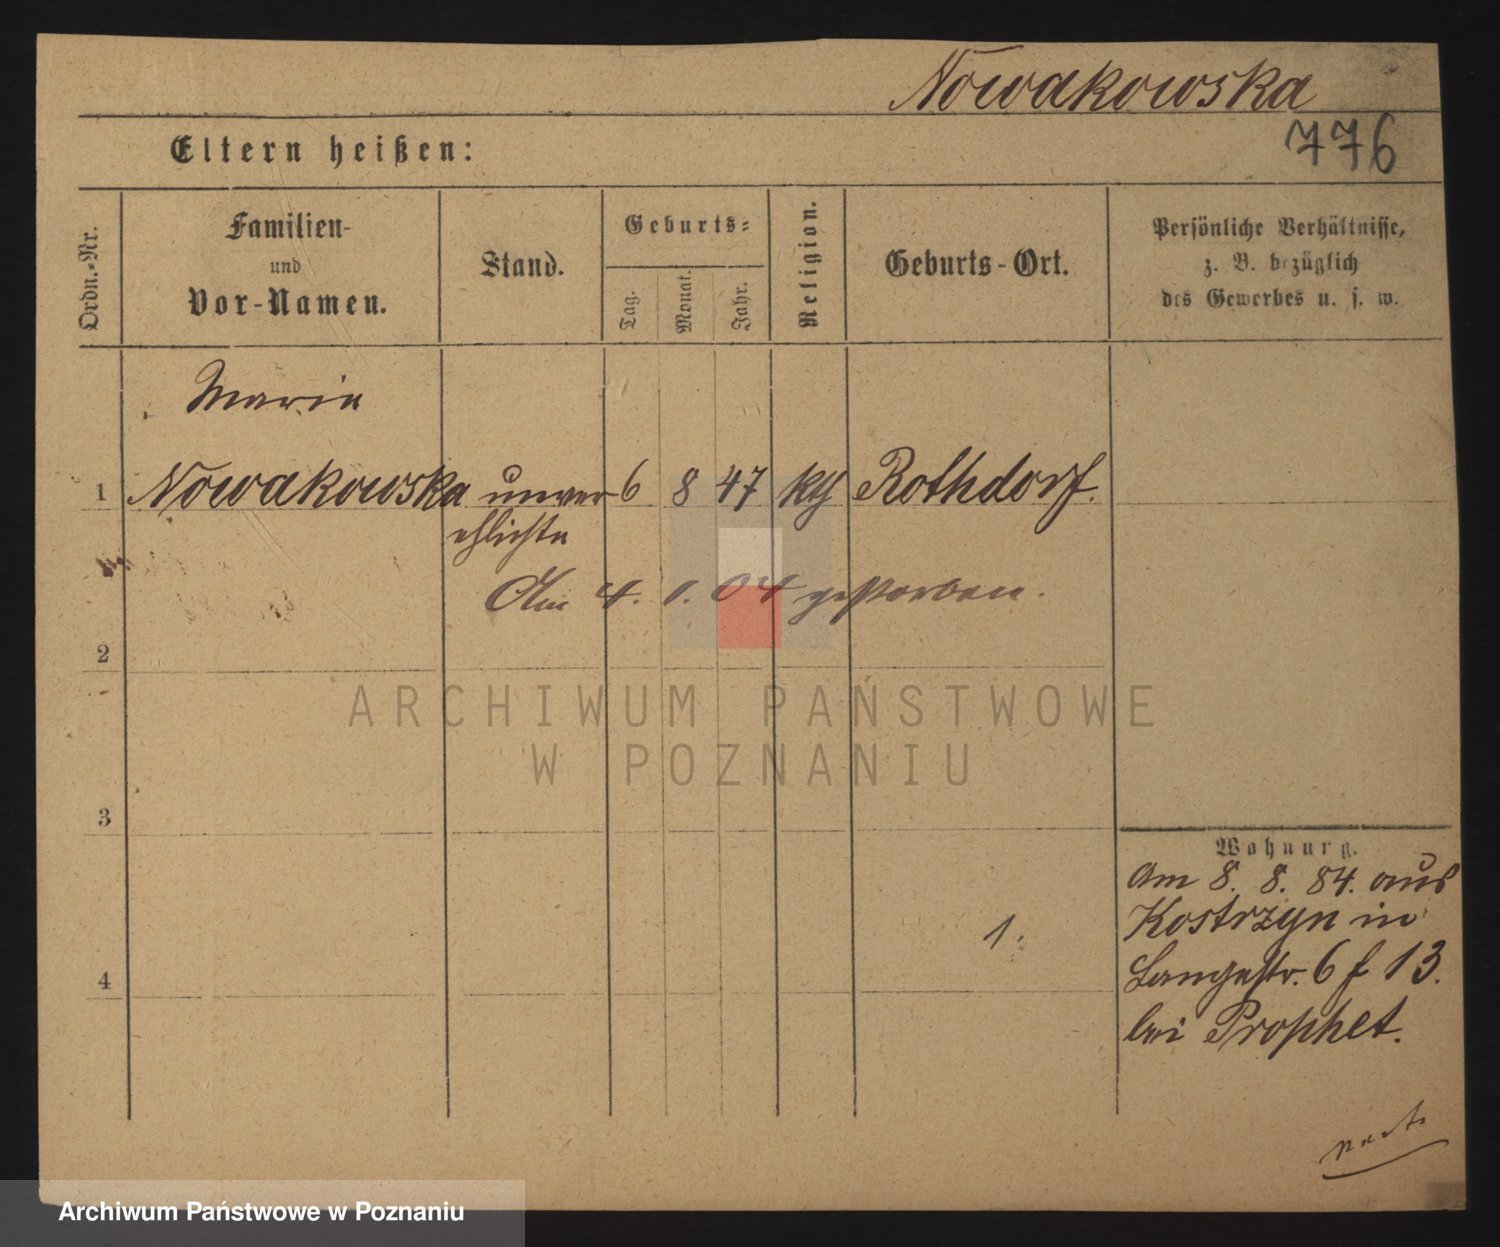 Nowakowska
776
Eltern heißen:
Ordn.-Nr.
Familien-
und
Vor-Namen.
Stand.
Geburts-
Tag.
Monat.
Jahr.
Religion.
Geburts-Ort.
Persönliche Verhältnisse,
z. B. bezüglich
des Gewerbes u. s. w.
Marie
1 Nowakowska unver 6 8 47 kth Rothdorf.
ehlichte
Am 4. 1. 04 gestorben.
2
ARCHIWUM PAŃSTWOWE
W POZNANIU
3
Wohnung.
Am 8. 8. 84. aus
Kostrzyn in
1.
Langestr. 6 f 13.
4
bei Prophet.
Archiwum Państwowe w Poznaniu